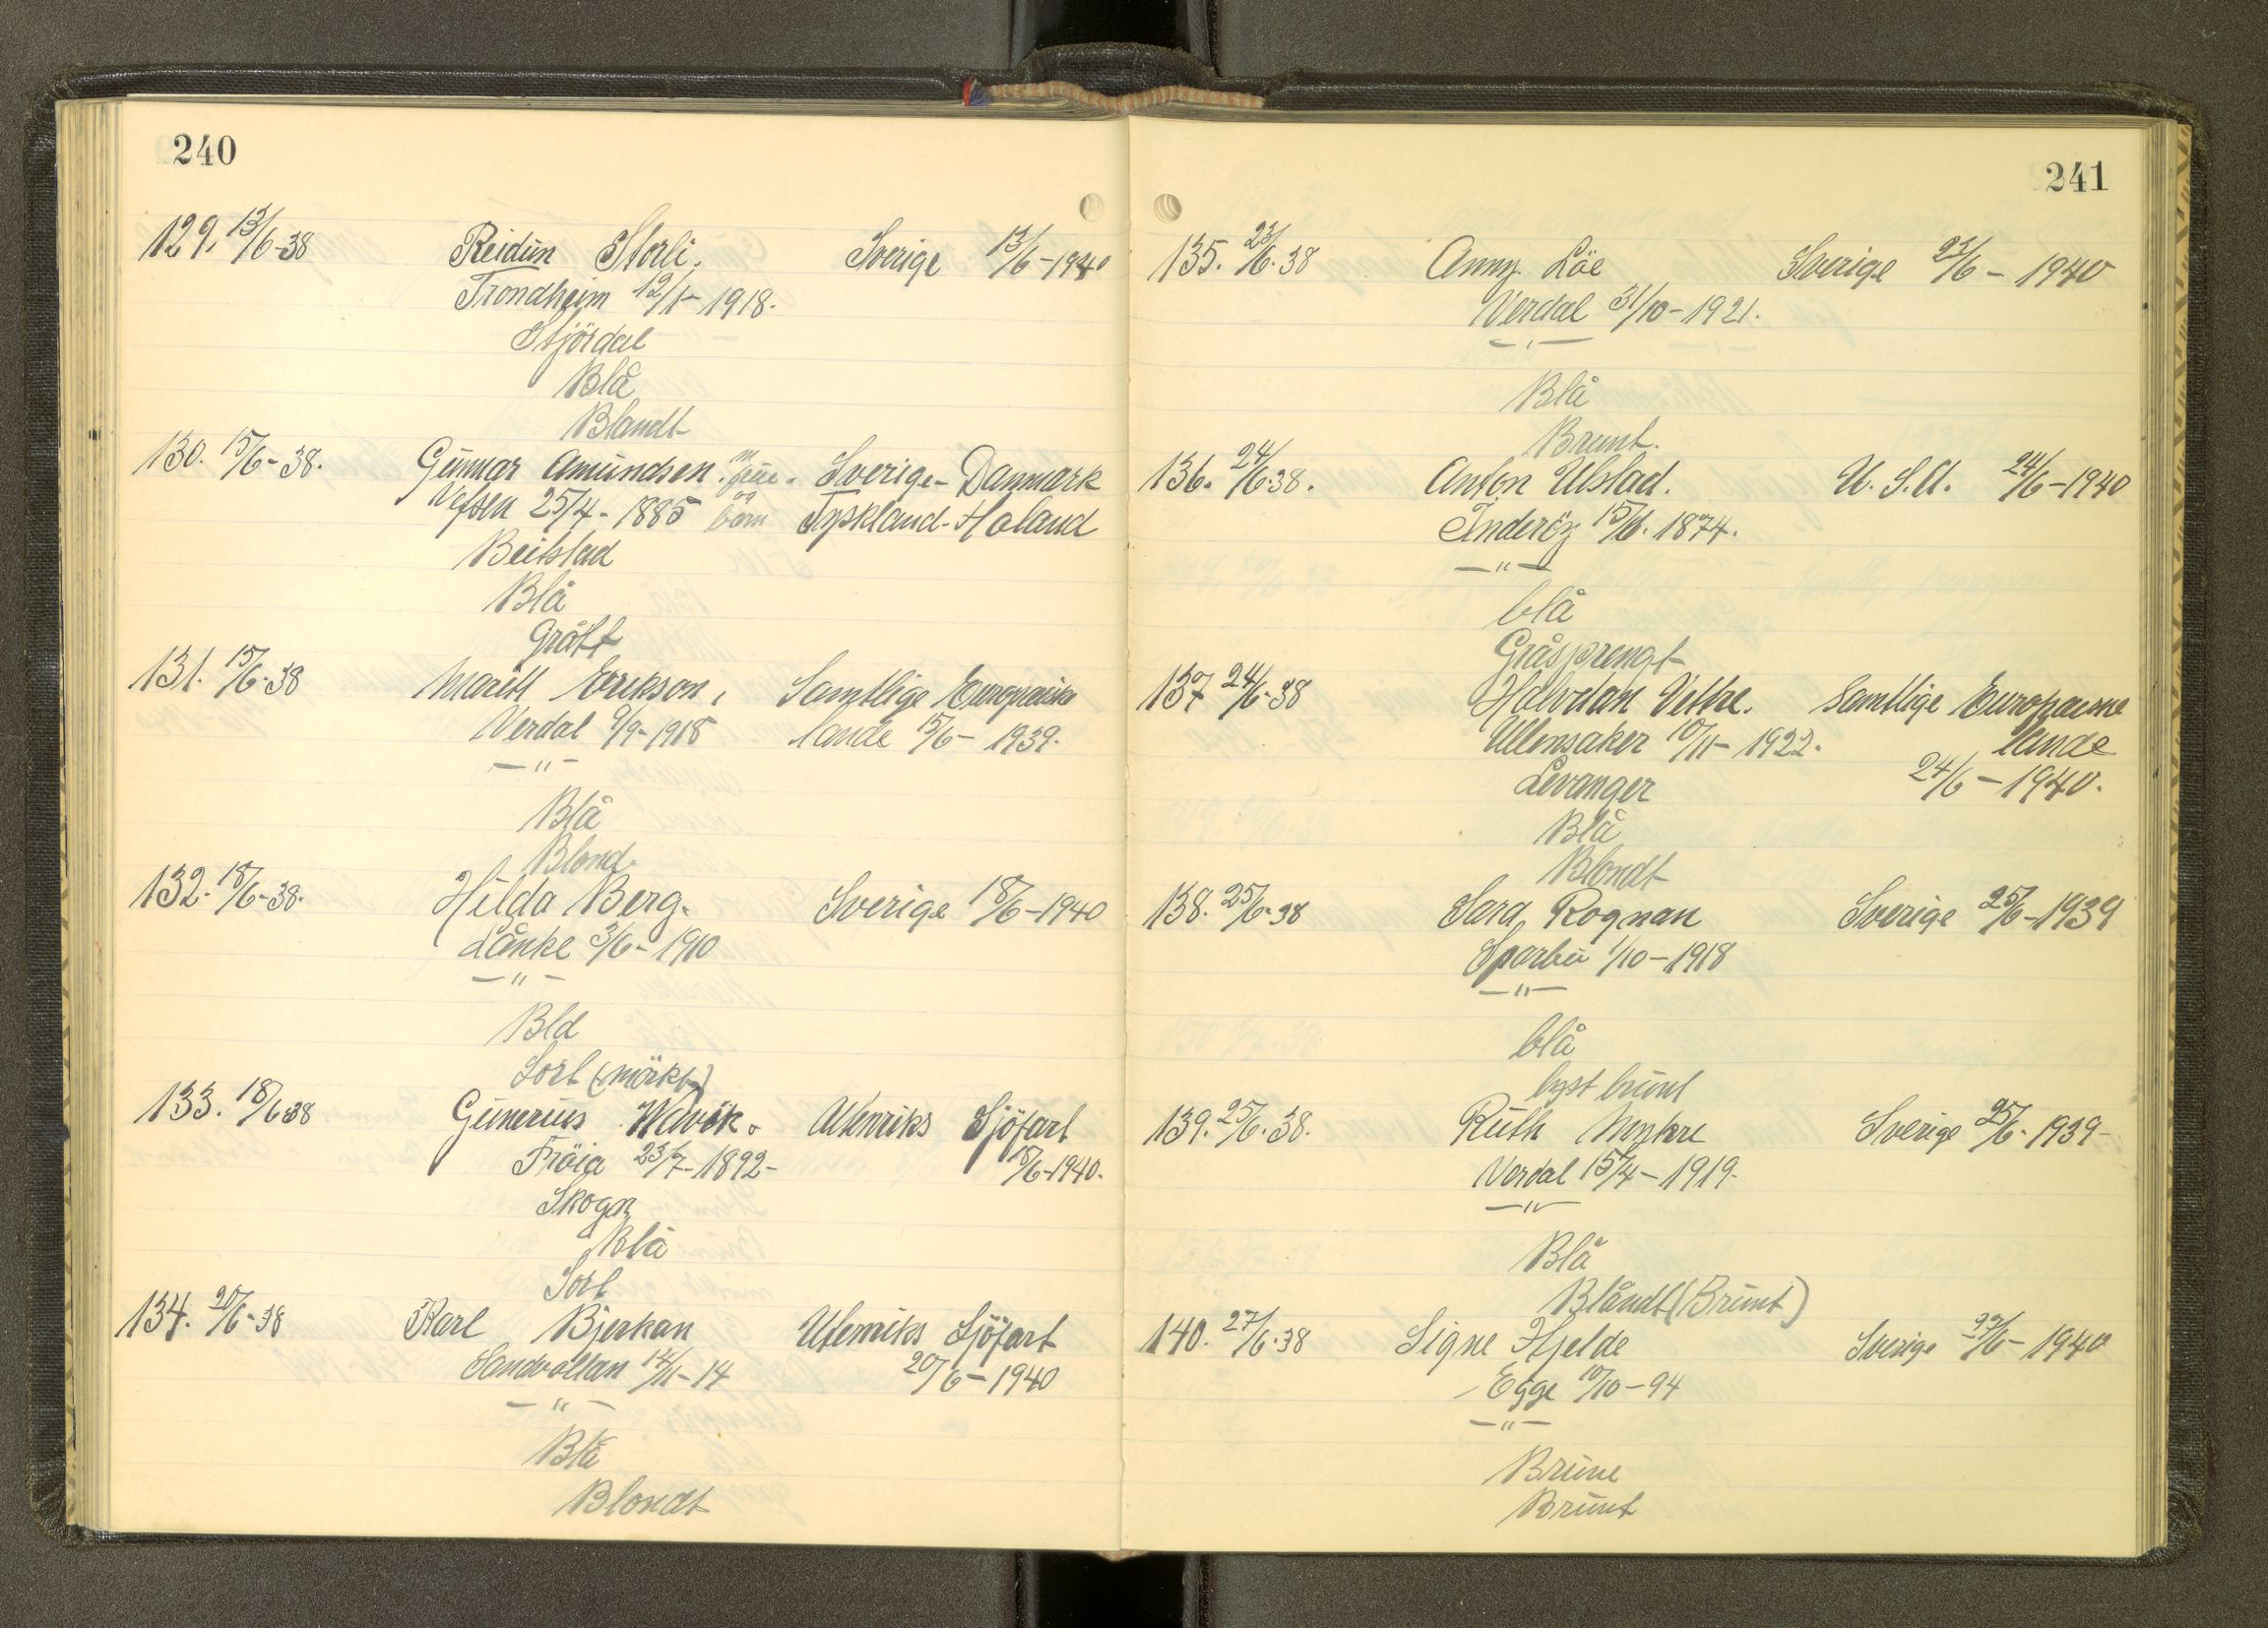 240
129. 13/6-38 Reidun Storli. Sverige 13/6-1940
Trondheim 12/1-1918.
Stjördal
Blå
Blandt
130. 15/6-38. Gunnar Amundsen. m frue. Sverige-Danmark
Vefsen 25/4-1885 og barn Tyskland-Holand
Beitstad
Blå
Grått
131. 15/6-38 Maritt Erikson, Samtlige Europæiske
Verdal 9/9-1918 lande 15/6-1939.
-"-
Blå
Blond.
132. 18/6-38. Hilda Berg. Sverige 18/6-1940
Lånke 3/6-1910
-"-
Blå
Sort (mörkt)
133. 18/6 38 Gunerius Wavik. Utenriks Sjöfart
Fröia 23/7-1892- 18/6-1940.
Skogn
Blå
Sort
134. 20/6-38 Karl Bjerkan Utenriks Sjöfart
Sandvollan 14/11-14 20/6-1940
-"-
Blå
Blondt
241
135. 23/6.38 Anny Löe Sverige 23/6-1940
Verdal 31/10-1921.
-"-
Blå
Brunt.
136. 24/6.38. Anton Ulstad. U.S.A. 24/6-1940
Inderöy 15/6.1874.
-"-
blå
Gråsprengt
137 24/6-38 Halvdan Vettre. Samtlige Europæiske
Ullensaker 10/11-1922. lande
Levanger 24/6-1940.
Blå
Blondt
138. 25/6-38 Sara Rognan Sverige 25/6-1939
Sparbu 1/10-1918
-"-
blå
lyst brunt
139. 25/6.38. Ruth Mykre Sverige 25/6.1939-
Verdal 15/4-1919-
-"-
Blå
Blåndt (Brunt)
140. 27/6.38 Signe Hjelde Sverige 27/6-1940
Egge 10/10-94
-"-
Brune
Brunt